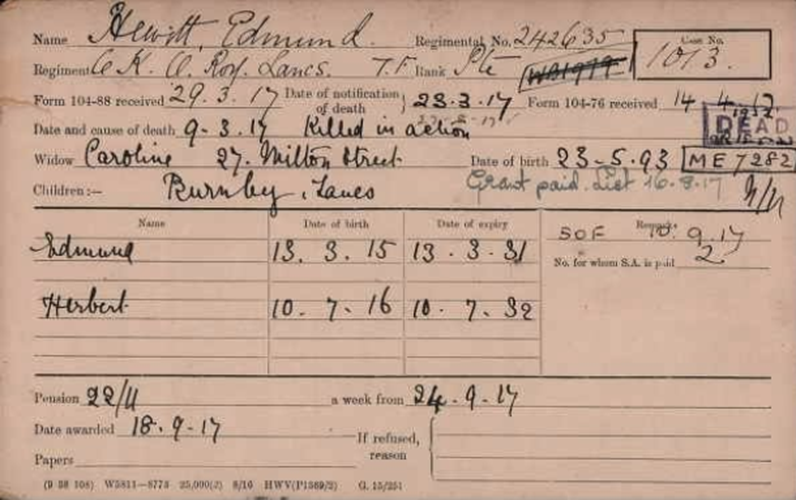 Name Hewitt, Edmund. Regimental No. 242635 Case No. 1013.
Regiment K. O. Roy. Lancs. T.F. Rank Pte
Form 104-88 received 29.3.17 Date of notification of death 23.3.17 Form 104-76 received 14 4 17
Date and cause of death 9-3.17 Killed in action DEAD
Widow Caroline 27. Milton Street Date of birth 23-5.93 ME 7282
Children:— Burnley, Lancs Grant paid. List 16.8.17
Name Date of birth Date of expiry Remarks
SOF 10.9.17
Edmund 13. 3. 15 13 . 3 . 31 No. for whom S.A. is paid 2
Herbert 10. 7. 16 10. 7. 32
Pension 22/11 a week from 24.9.17
Date awarded 18.9.17 If refused, reason
Papers
(9 38 108) W5811—8773 25,000(2) 8/16 HWV(P1569/2) G. 15/251